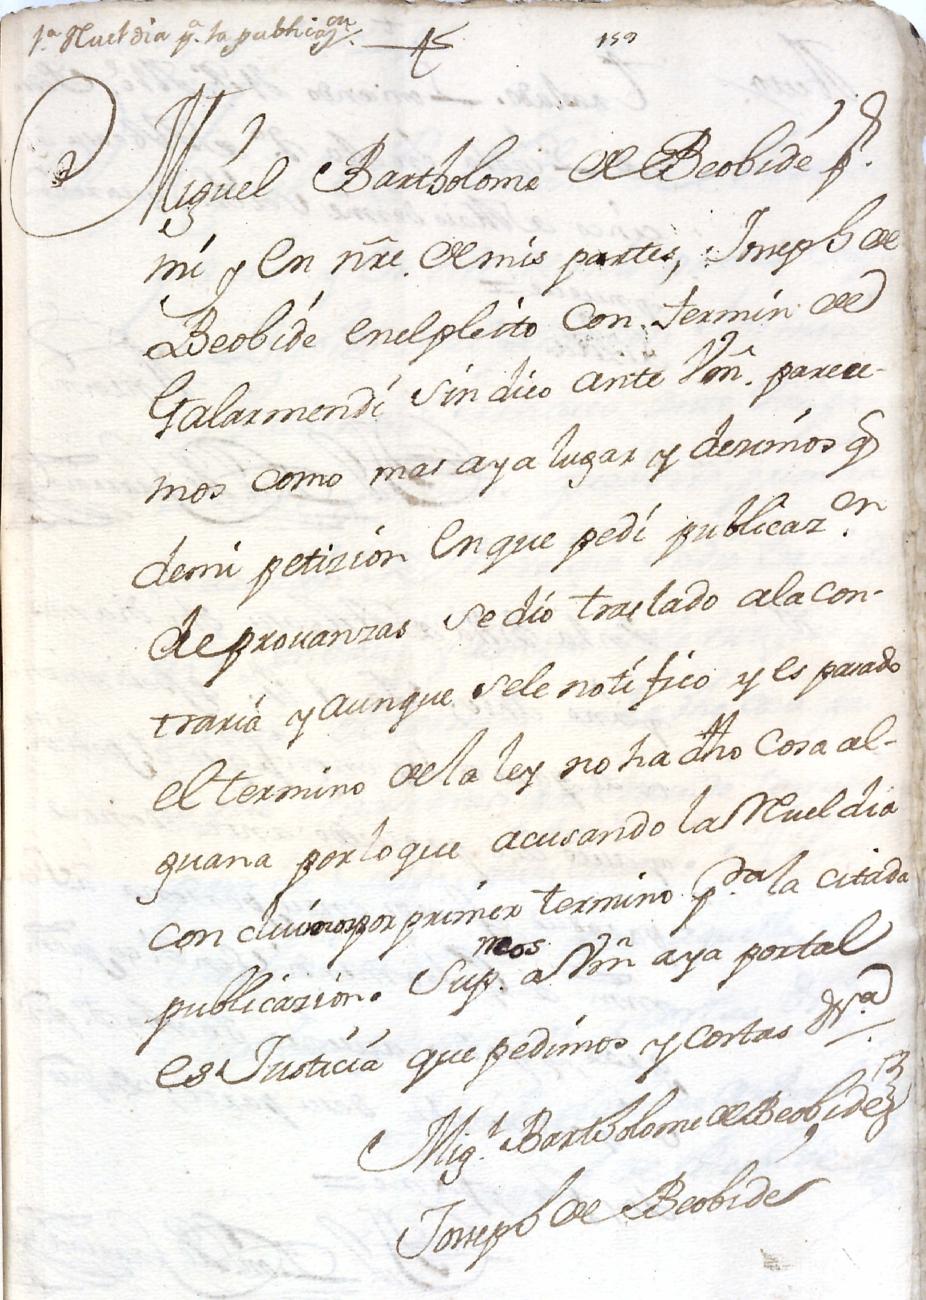 1.ª Rueldia p.ª la publicaz.on 159
Miguel Bartholome de Beobide p.r
mi y en nr̃e. de mis partes, Joseph de
Beobide en el pleito con fermin de
Galarmendi sindico ante Vm̃. parece-
mos como mas aya lugar y dezimos q̃
de mi petizion en que pedi publicaz.on
de prouanzas se dio traslado a la con-
traria y aunque se le notifico y es pasado
el termino de la ley no ha dho cosa al-
guana por lo que acusando la Rueldia
por primer termino p.ª la citada
publicazion. Sup.mos a Vm̃ aya por tal
es Justicia que pedimos y costas &.ª
Mig.l Bartholome de Beobide
Joseph de Beobide